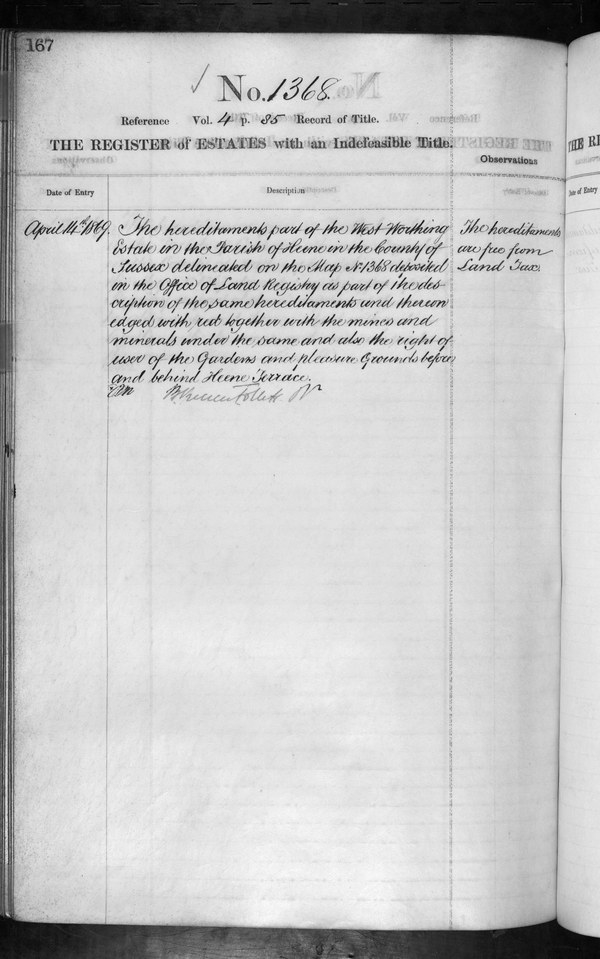 167
No. 1368.
Reference Vol. 4 p. 85 Record of Title.
THE REGISTER of ESTATES with an Indefeasible Title.
Observations
Date of Entry
Description
April 14th 1869.
The hereditaments part of the West Worthing
Estate in the Parish of Heene in the County of
Sussex delineated on the Map No 1368 deposited
in the Office of Land Registry as part of the des-
cription of the same hereditaments and thereon
edged with red together with the mines and
minerals under the same and also the right of
user of the Gardens and pleasure Grounds before
and behind Heene Terrace.
Follett
The hereditaments
are free from
Land Tax.
THE RE
Date of Entry